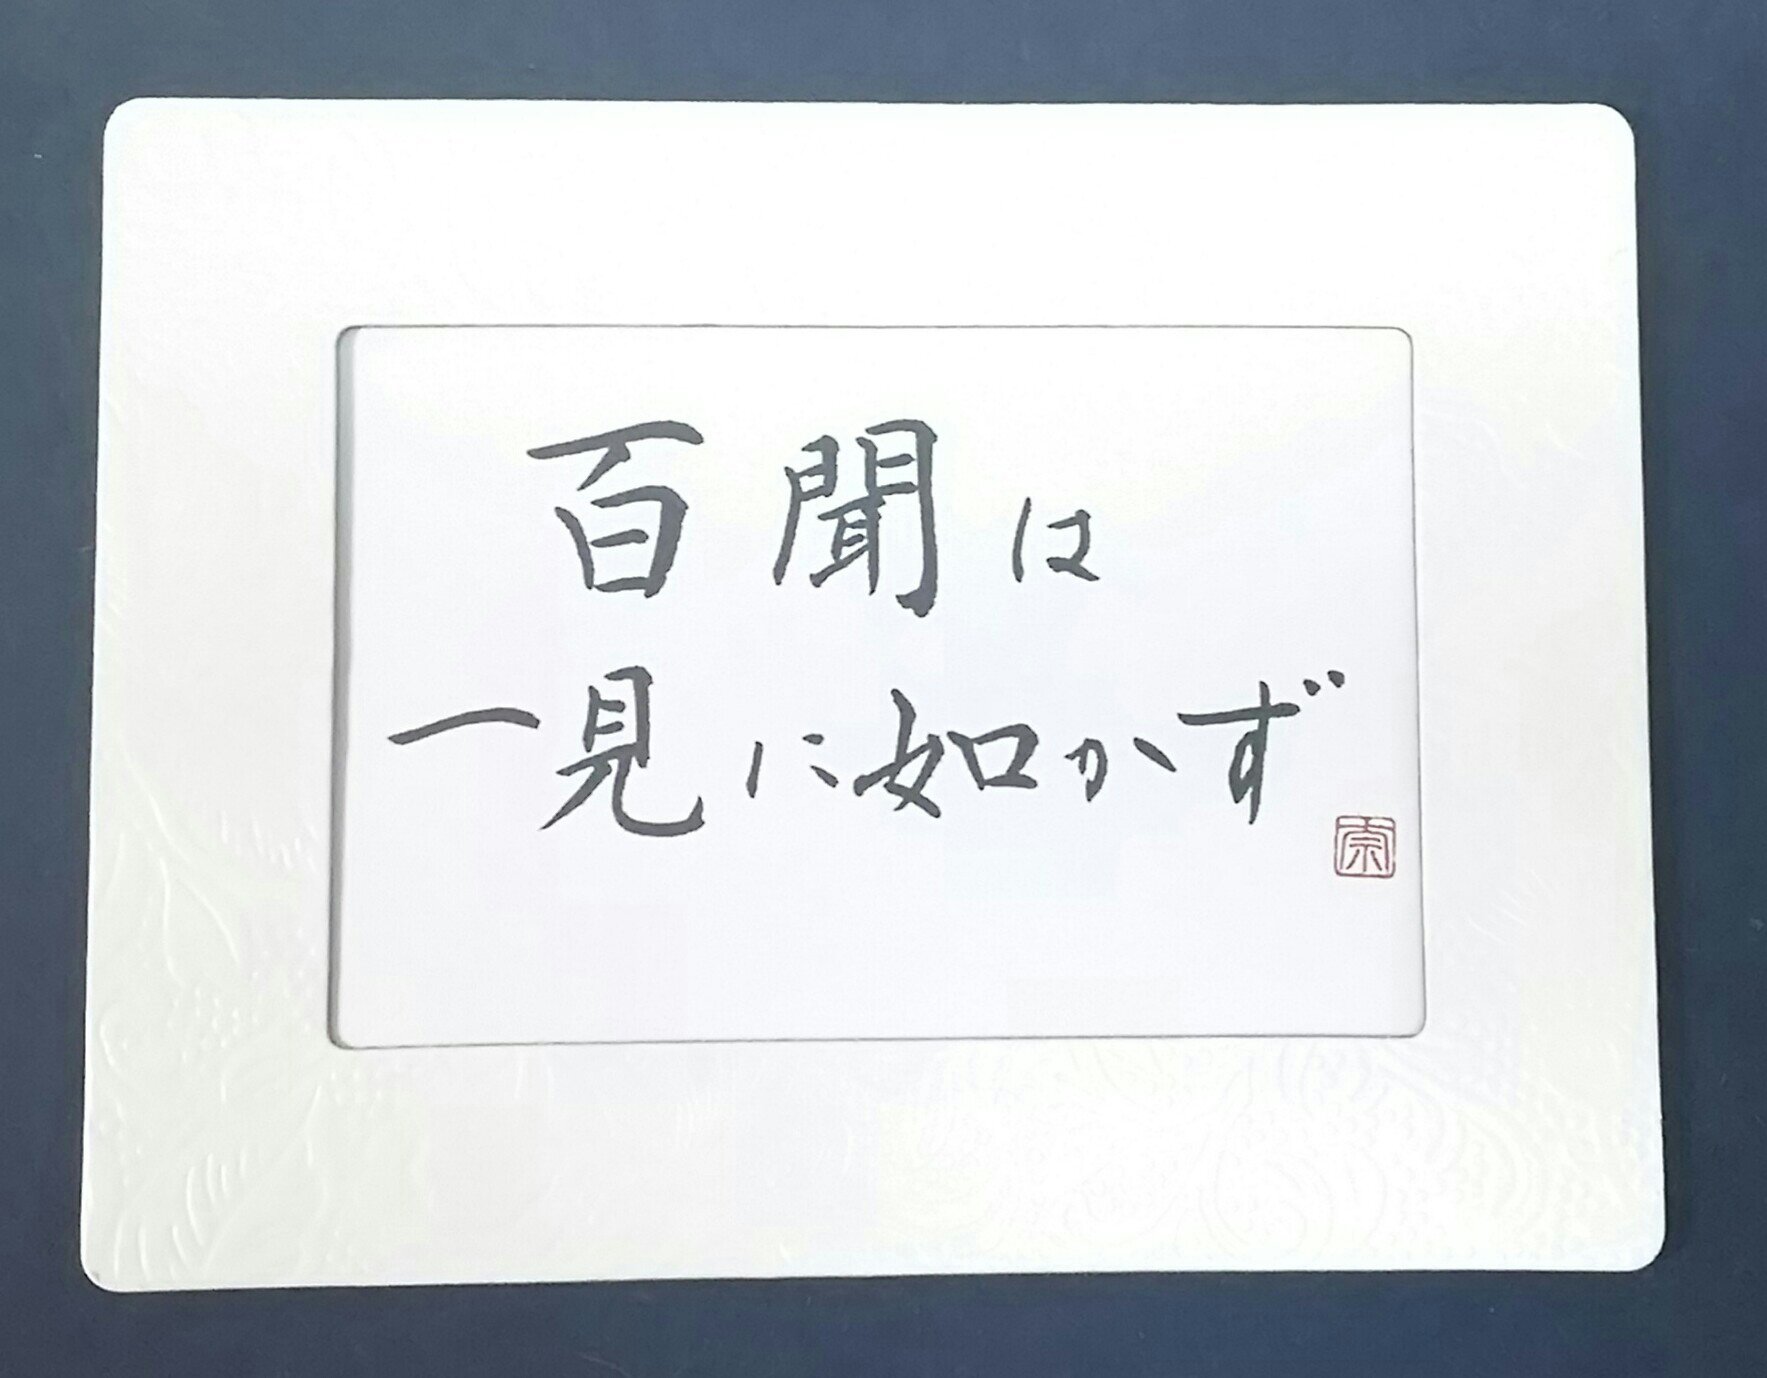 百聞は
一見に如かず